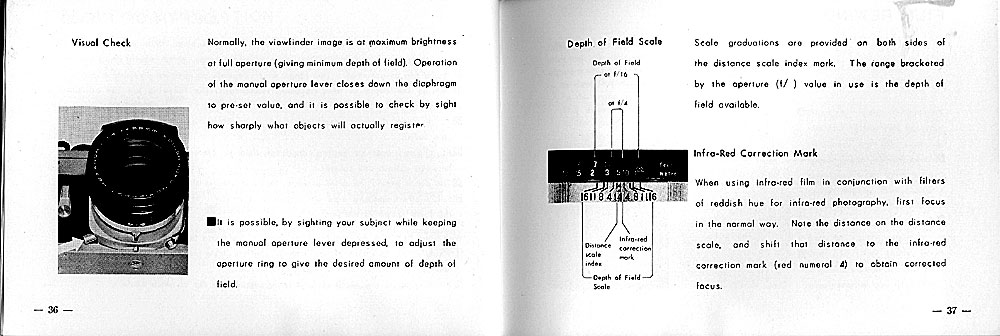 Visual Check
Normally, the viewfinder image is at maximum brightness
at full aperture (giving minimum depth of field). Operation
of the manual aperture lever closes down the diaphragm
to pre-set value, and it is possible to check by sight
how sharply what objects will actually register.
■It is possible, by sighting your subject while keeping
the manual aperture lever depressed, to adjust the
aperture ring to give the desired amount of depth of
field.
— 36 —
Depth of Field Scale
Scale graduations are provided on both sides of
the distance scale index mark. The range bracketed
by the aperture (f/ ) value in use is the depth of
field available.
Depth of Field
at f/16
at f/4
5 2 3 5
16 11 8 4 4 8 11 16
Distance
scale
index
Infra-red
correction
mark
Depth of Field
Scale
Infra-Red Correction Mark
When using infra-red film in conjunction with filters
of reddish hue for infra-red photography, first focus
in the normal way. Note the distance on the distance
scale, and shift that distance to the infra-red
correction mark (red numeral 4) to obtain corrected
focus.
— 37 —